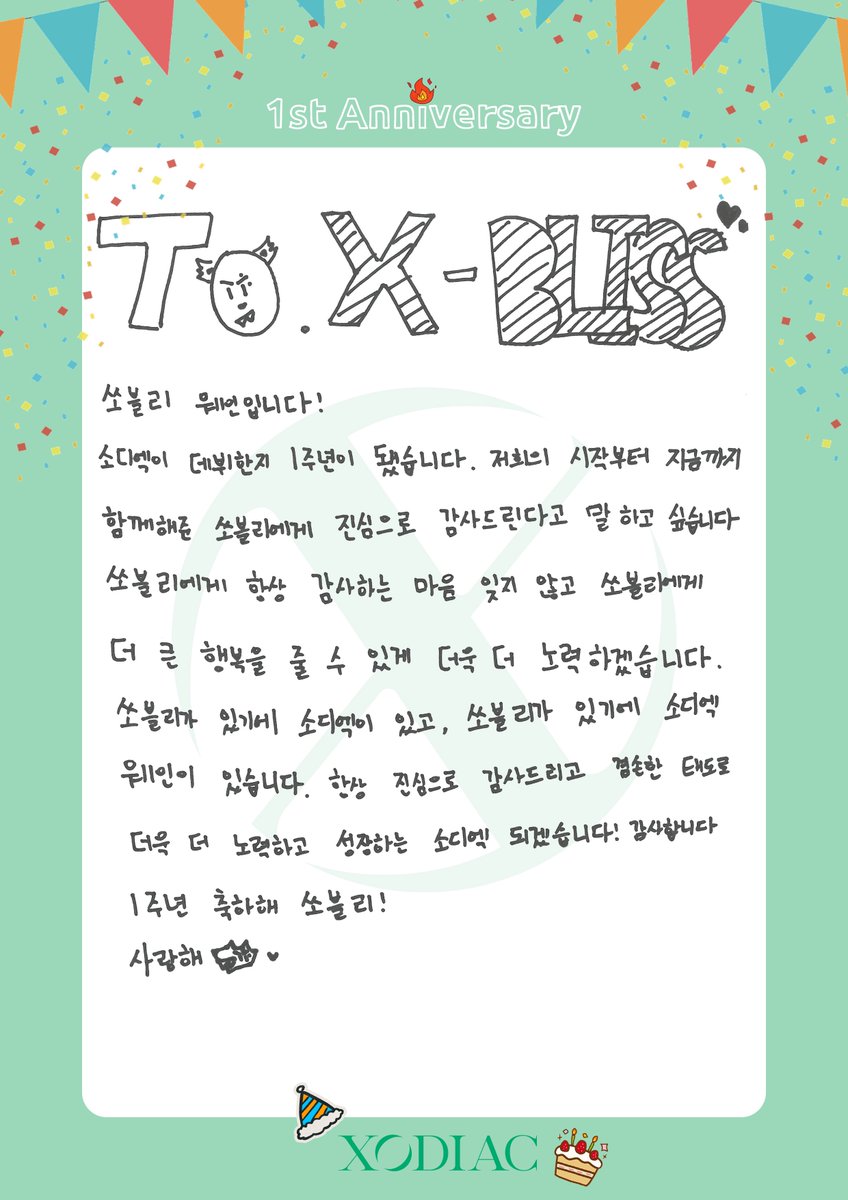 1st Anniversary
To. X-BLISS
쏘블리 웨인입니다!
소디엑이 데뷔한지 1주년이 됐습니다. 저희의 시작부터 지금까지
함께해준 쏘블리에게 진심으로 감사드린다고 말하고 싶습니다
쏘블리에게 항상 감사하는 마음 잊지 않고 쏘블리에게
더 큰 행복을 줄 수 있게 더욱 더 노력하겠습니다.
쏘블리가 있기에 소디엑이 있고, 쏘블리가 있기에 소디엑
웨인이 있습니다. 항상 진심으로 감사드리고 겸손한 태도로
더욱 더 노력하고 성장하는 소디엑 되겠습니다! 감사합니다
1주년 축하해 쏘블리!
사랑해
XODIAC